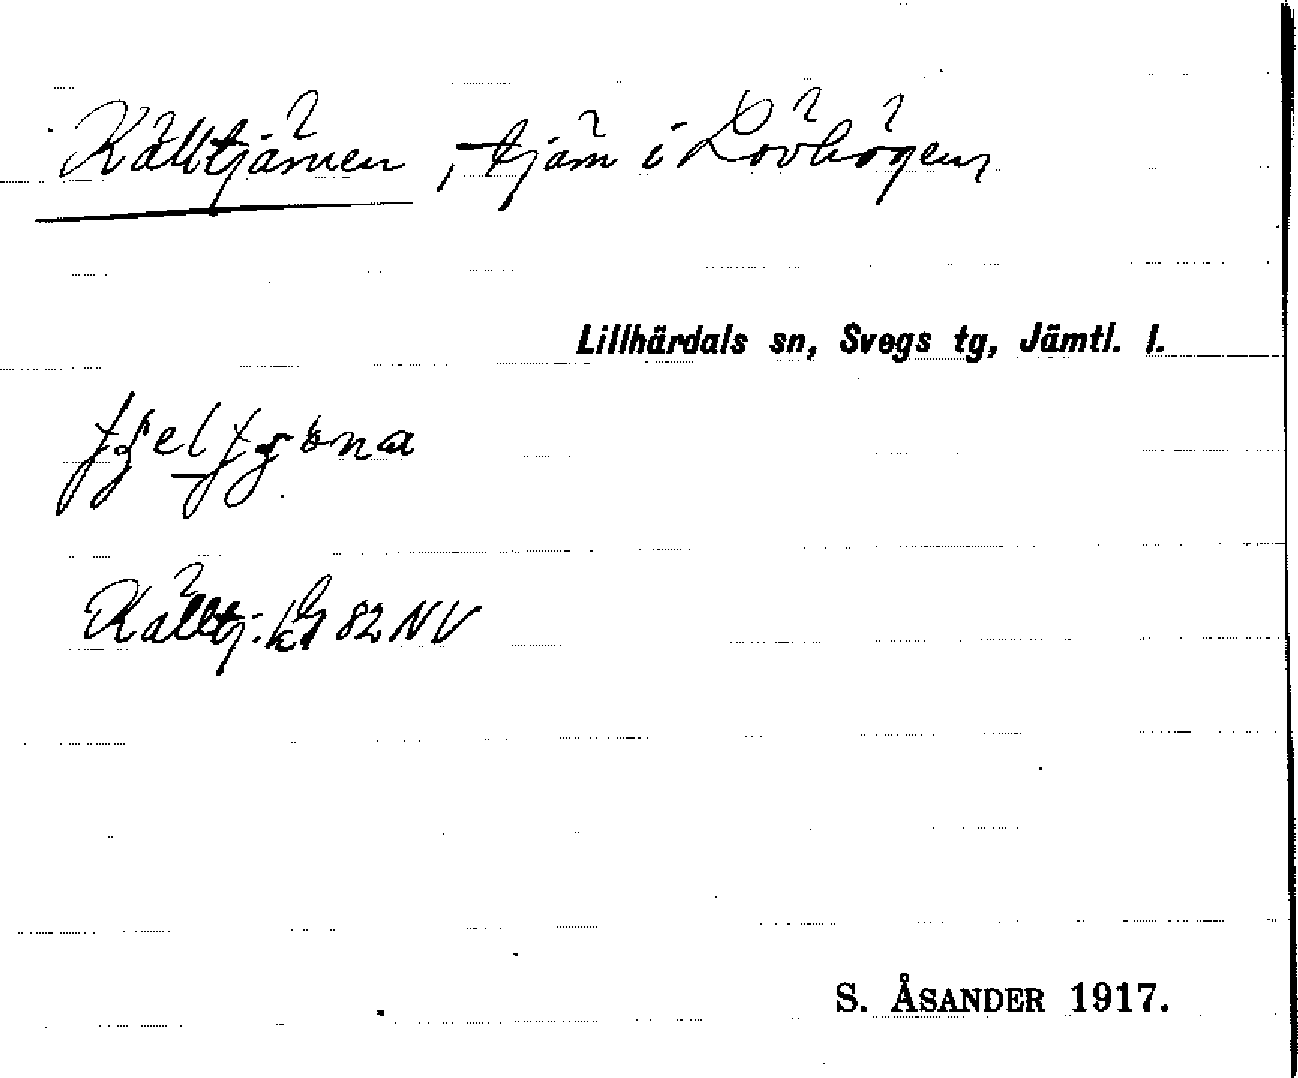 Källtjärnen, tjärn i Lövhögen,
Lillhärdals sn, Svegs tg, Jämtl. l.
Källtj. kg 82 NV
S. ÅSANDER 1917.